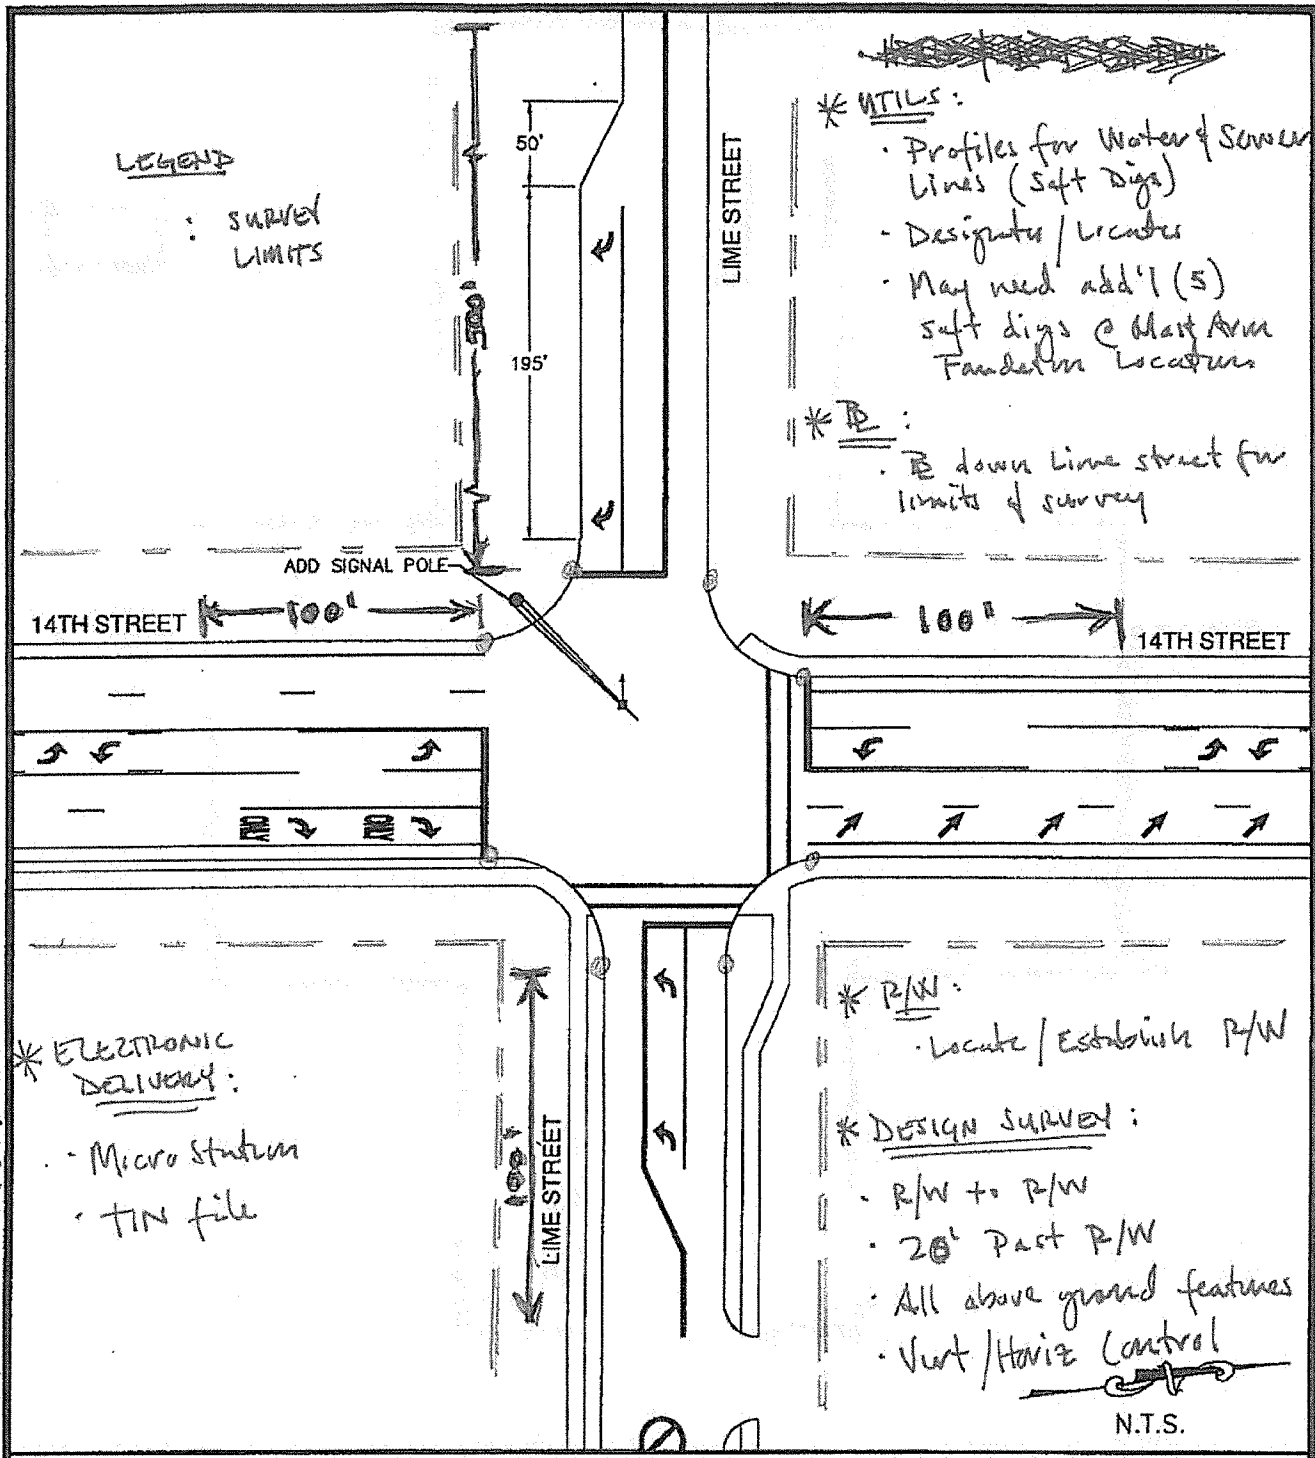 LEGEND
: SURVEY
LIMITS
50'
195'
500'
LIME STREET
* UTILS:
· Profiles for Water & Sewer
Lines (Soft Digs)
· Designates / Locates
· May need add'l (5)
soft digs @ Mast Arm
Foundation Locations
* BL:
· BL down Lime street for
limits of survey
ADD SIGNAL POLE
14TH STREET
100'
100'
14TH STREET
ONLY
ONLY
* ELECTRONIC
DELIVERY:
· MicroStation
· TIN file
100'
LIME STREET
* R/W:
· Locate / Establish R/W
* DESIGN SURVEY:
· R/W to R/W
· 20' Past R/W
· All above ground features
· Vert / Horiz Control
N.T.S.